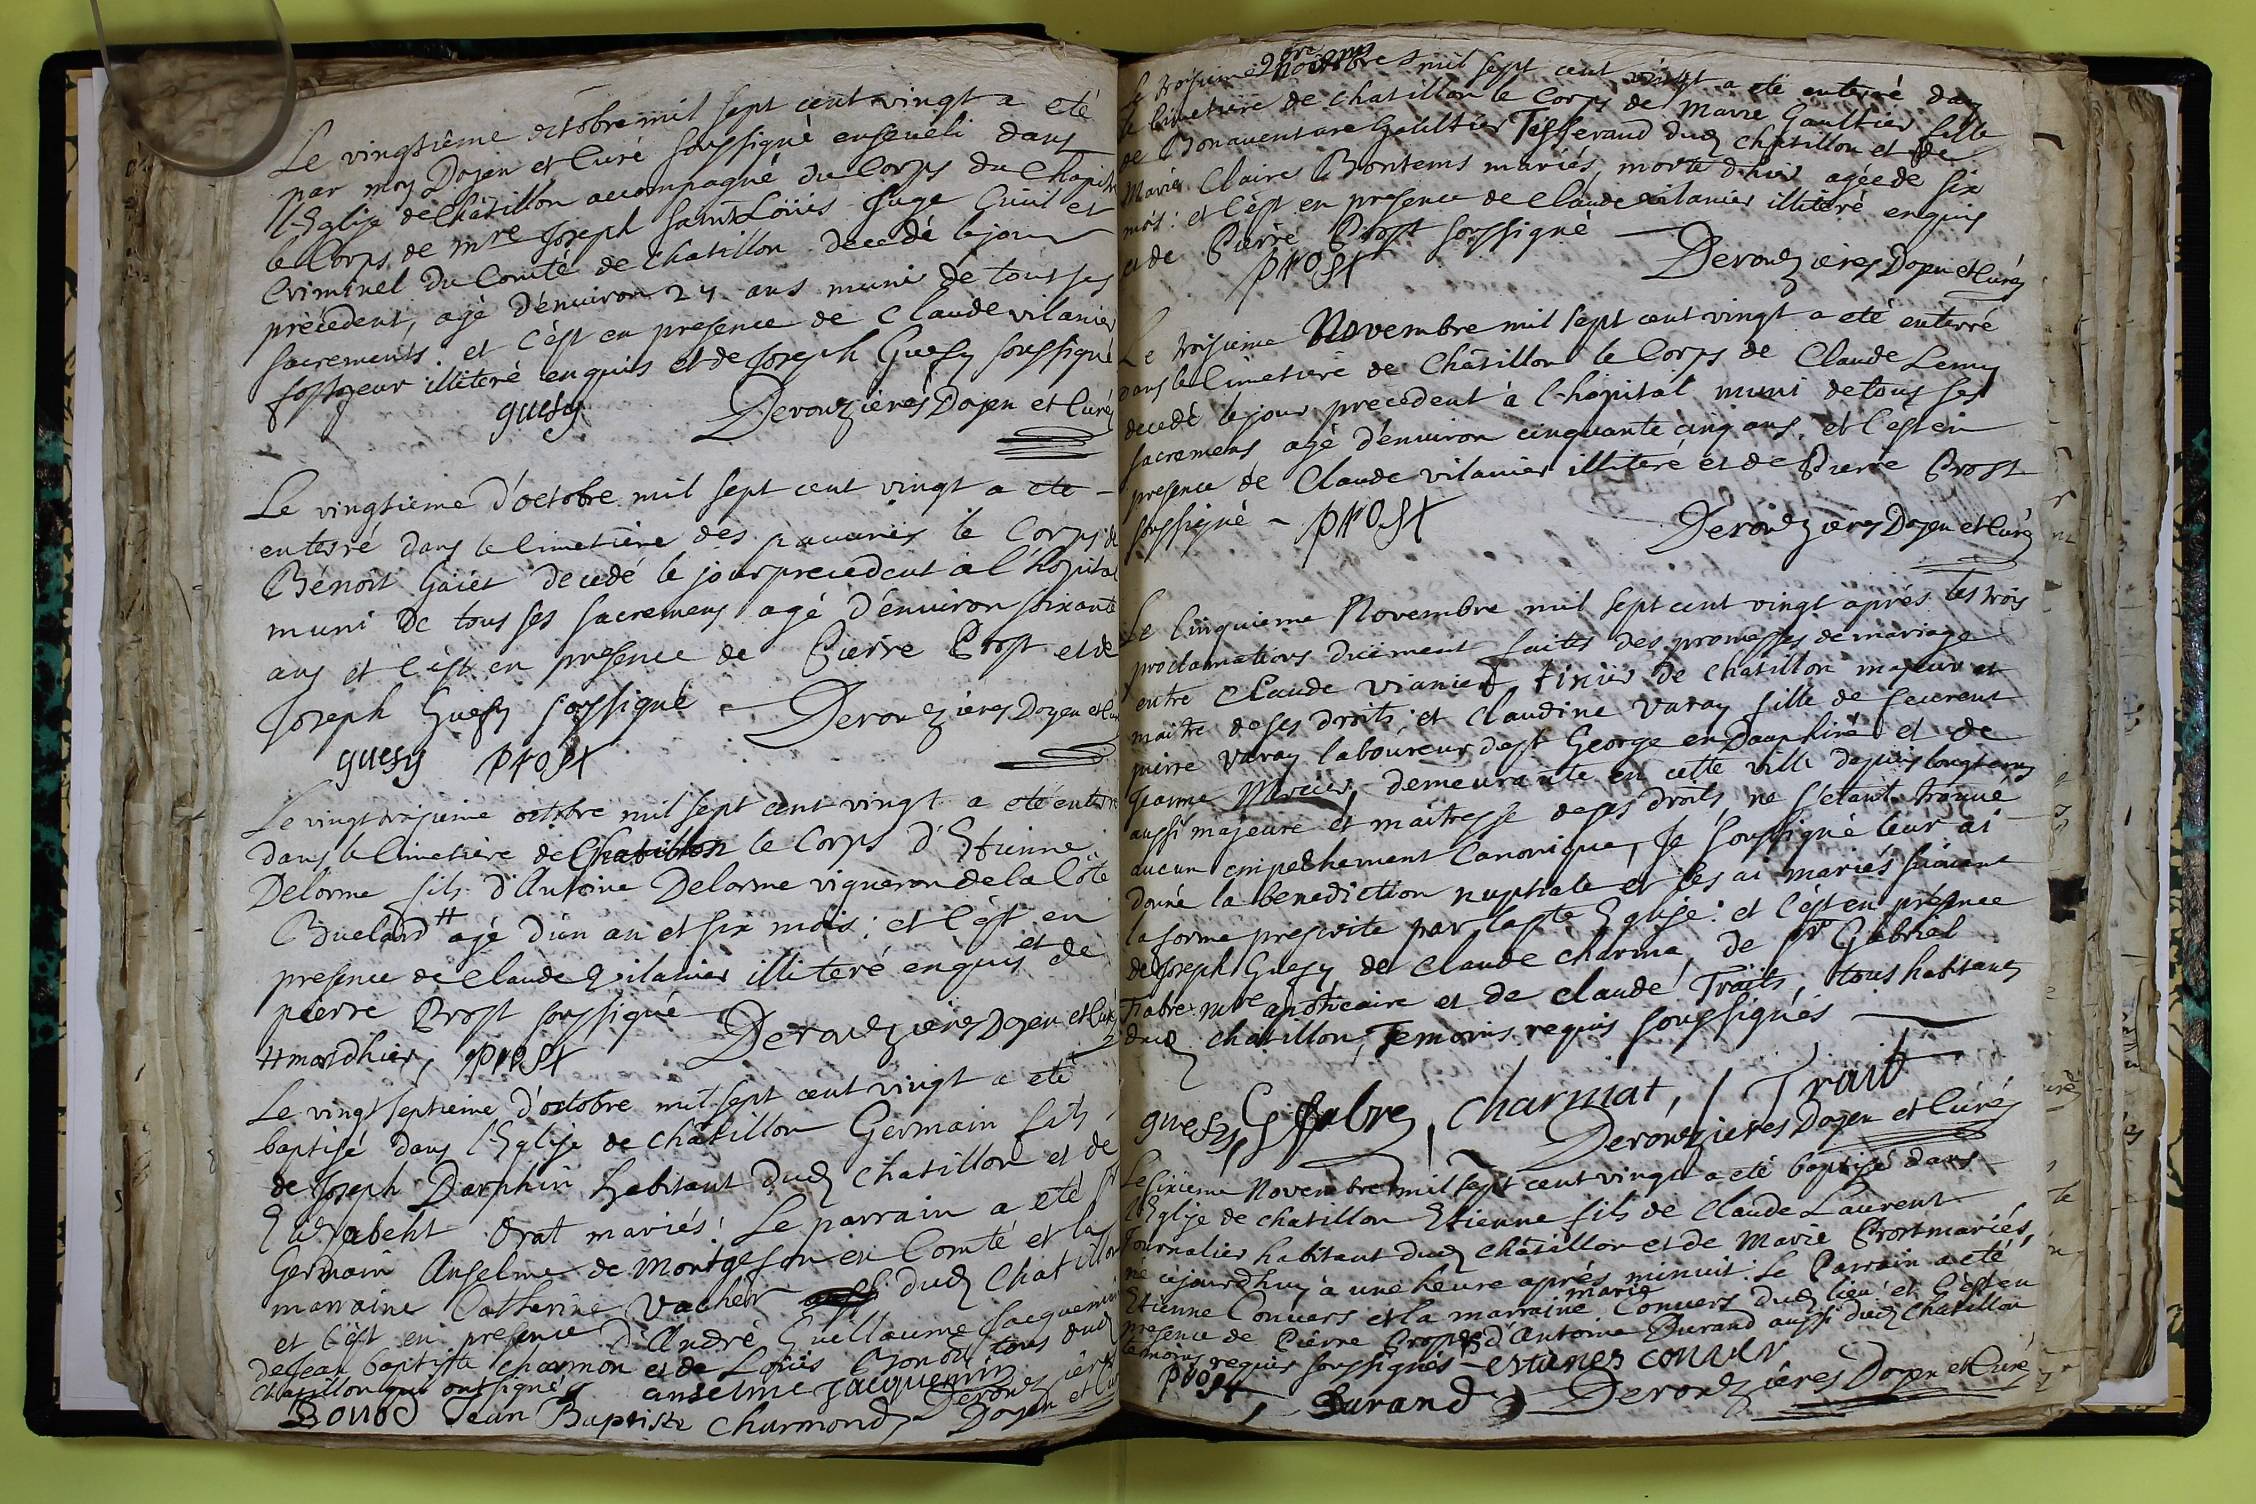 Le vingtiême octobre mil sept cent vingt a eté
par moy Dojen et Curé soussigné enseveli dans
l'Eglise de Châtillon accompagné du Corps du Chapitre
le Corps de mre Joseph Saint Loüis Juge Civil et
Criminel du Comté de chatillon decedé le jour
précedent, agé d'environ 24 ans muni de tous ses
sacrements. et c'est en presence de Claude vilanier
fossoyeur illiteré enquis et de Joseph Guesy soussigné
guesy Derouzieres Dojen et Curé
Le vingtiéme d'octobre mil sept cent vingt a eté -
enterré dans le Cimetiére des pauvres le Corps de
Bénoit Gaiet decedé le jour precedent à l'hôpital
muni de tous ses sacremens agé d'environ soixante
ans et c'est en presence de Pierre Prost et de
Joseph Guesy soussigné Derouzieres Doyen et Cu
guesy prost
Le vingt troisieme octobre mil sept cent vingt a eté enterré
dans le Cimetiere de Chatillon le Corps d'Etienne
Delorme fils d'Antoine Delorme vigneron de la Côte
Buelard # agé d'un an et six mois: et c'est en
presence de Claude vilanier illiteré enquis et de
pierre Prost soussigné
# mort d'hier, prost Derouzieres Doyen et Curé
Le vingt septieme d'octobre mil sept cent vingt a eté
baptisé dans l'Eglise de châtillon Germain fils
de Joseph Darphin habitant dud chatillon et de
Orat mariés: Le parrain a eté sr
Germain Anselme de en Comté et la
marraine Catherine Vacher dud Chatillon
et c'est en presence d'André Guillaume Jacquemin
de Jean baptiste Charmon et de Loüis Bonod tous dud
chatillon qui ont signé anselme Jacquemin
Bonod Jean Baptiste Charmond Derouzieres Doyen et Cu
Le troisieme 9bre mil sept cent vingt a eté enterré dans
le Cimetiere de chatillon le Corps de Marie Gaultier fille
de Bonaventure Gaultier Tisserand dud chatillon et de
Marie Claire Bontems mariés, morte d'hier agée de six
mois: et c'est en presence de Claude vilanier illiteré enquis
et de Pierre Prost soussigné
prost Derouzieres Dojen et Curé
Le troisieme Novembre mil sept cent vingt a eté enterré
dans le Cimetiere de Châtillon le Corps de Claude
decedé le jour precedent à l'hôpital muni de tous ses
sacremens agé d'environ cinquante cinq ans, et c'est en
presence de Claude vilanier illiteré et de Pierre Prost
soussigné - prost Derouzieres Doyen et Curé
Le Cinquieme Novembre mil sept cent vingt aprés les trois
proclamations düement faites des promesses de mariage
entre Claude vianier de chatillon majeur et
maître de ses droits et Claudine varay fille de
pierre varay laboureur de st George en Dauphiné et de
Jeanne Mercier, demeurante en cette ville depuis longtems
aussi majeure et maîtresse de ses droits, ne s'etant trouué
aucun empechement Canonique, Je soussigné leur ai
donné la benediction nuptiale et les ai mariés suivant
la forme prescrite par la ste Eglise: et c'est en présence
de Joseph Guesy de Claude charma, de sr Gabriel
Fabre mre apothicaire et de claude Trait, tous habitants
dud chatillon, Temoins requis soussignés
guesy, G ffabre, Charmat, Trait
Derouzieres Doyen et Curé
Le sixieme Novembre mil sept cent vingt a eté baptisé dans
l'Eglise de chatillon Etienne fils de Claude Laurent
Journalier habitant dud châtillon et de Marie Prost mariés,
né aujourdhuy à une heure aprés minuit: Le Parrain a eté
Etienne Convers et la marraine marie Convers dud lieu et c'est en
presence de Pierre Prost d'Antoine Durand aussi dud chatillon
temoins requis soussignés - estienes conver
prost, Durand Derouzieres Doyen et Curé